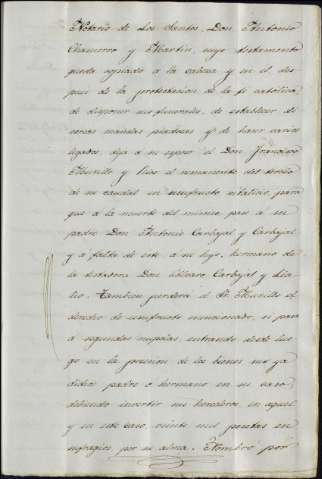 Notario de Los Santos, Don Antonio
Chamorro y Martin, cuyo testamento
queda agregado a la cabeza y en él des-
pues de la protestacion de la fe catolica,
de disponer sus funerales, de establecer di-
versas mandas piadosas y de hacer varios
legados, deja a su esposo el Don Francisco
Murillo y Rico el remanente del
de su caudal en usufructo vitalicio para
que a la muerte del mismo pase a su
padre Don Antonio Carbajal y Carbajal
y a falta de este a su hijo, hermano de
la testadora Don Carbajal y
Tambien perderá el Sr. Murillo el
derecho de usufructo mencionado, si pasa
a segundas nupcias, entrando desde lue-
go en la posesion de los bienes sus ya
dichos padre o hermano en su caso
debiendo invertir sus herederos, en aquel
y en este caso, veinte mil pesetas en
sufragios por su alma. Nombró por